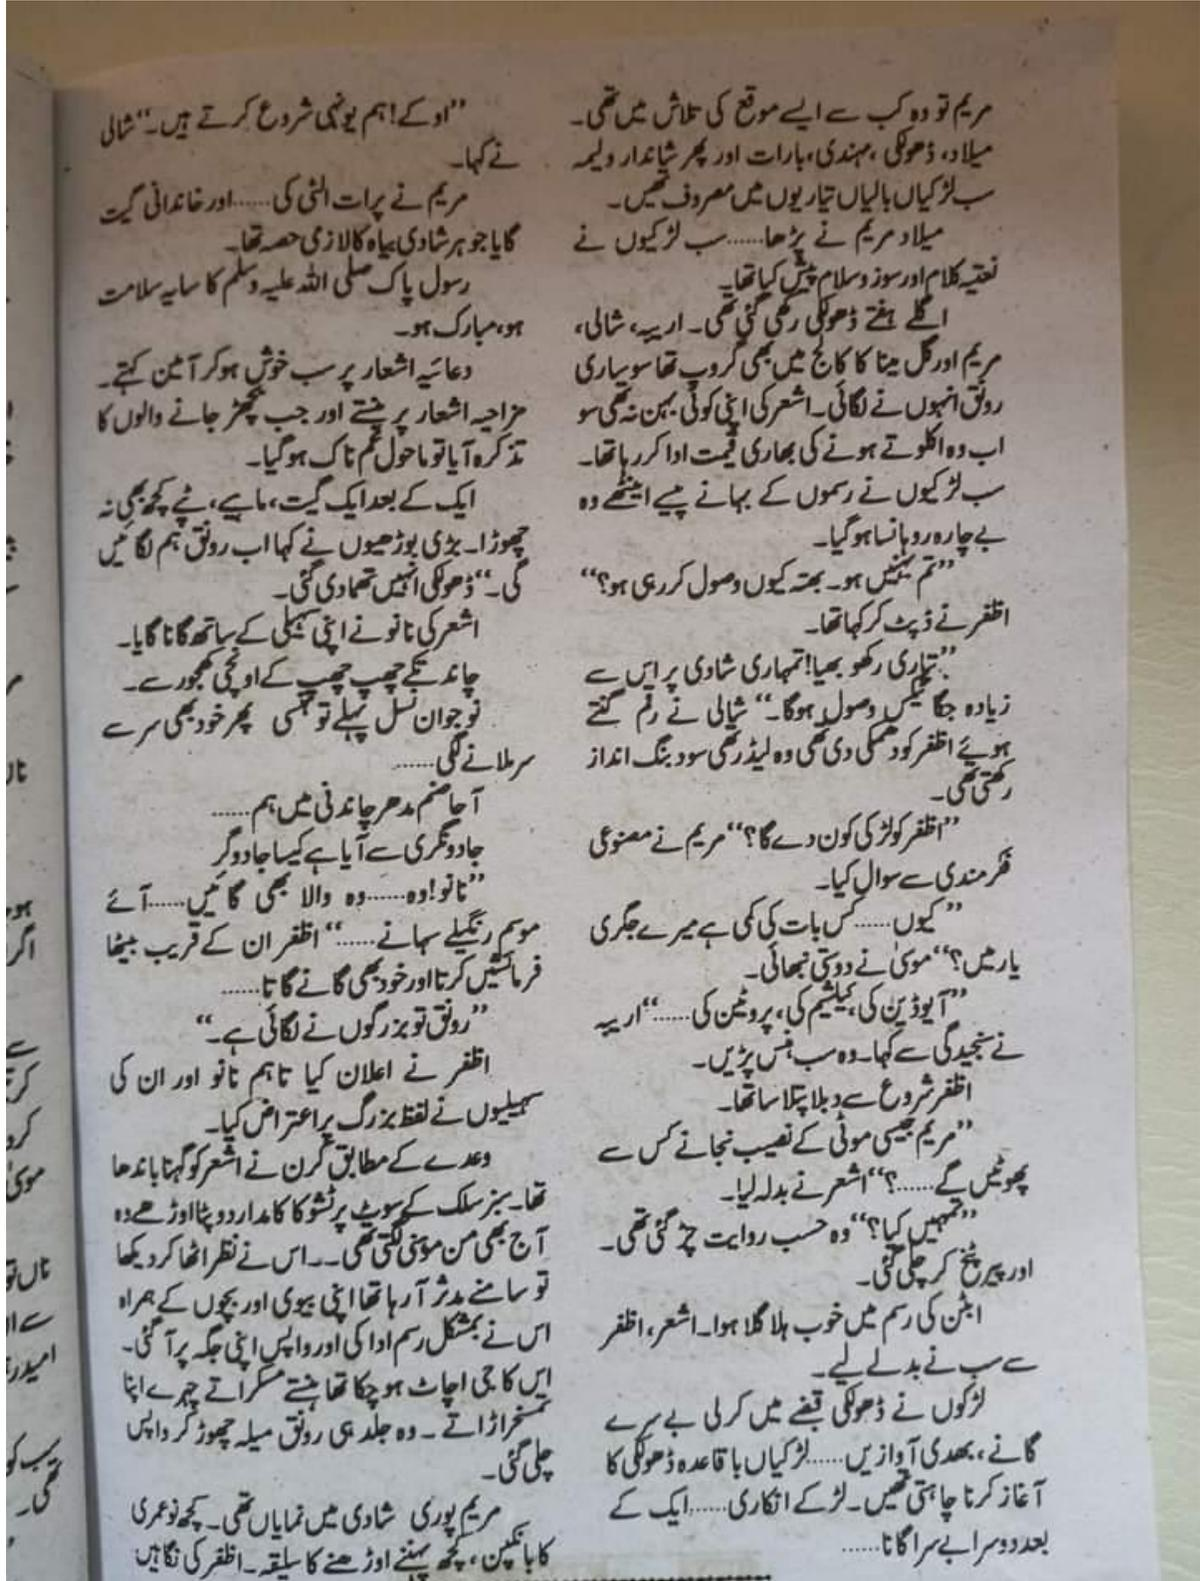 مریم تو وہ کب سے ایسے موقع کی تلاش میں تھی۔
میلاد، ڈھولکی، مہندی، بارات اور پھر شاندار ولیمہ
سب لڑکیاں بالیاں تیاریوں میں مصروف تھیں۔
میلاد مریم نے پڑھا...... سب لڑکیوں نے
نعتیہ کلام اور سوز و سلام پیش کیا تھا۔
اگلے ہفتے ڈھولکی رکھی گئی تھی۔ اریبہ، شالی،
مریم اور گل مینا کا کالج میں بھی گروپ تھا سو ساری
رونق انہوں نے لگائی۔ اشعر کی اپنی کوئی بہن نہ تھی سو
اب وہ اکلوتے ہونے کی بھاری قیمت ادا کر رہا تھا۔
سب لڑکیوں نے رسموں کے بہانے پیسے اینٹھے وہ
بے چارہ روہانسا ہو گیا۔
”تم بہنیں ہو۔ بھتہ کیوں وصول کر رہی ہو؟“
اظفر نے ڈپٹ کر کہا تھا۔
”تیاری رکھو بھیا! تمہاری شادی پر اس سے
زیادہ جگا ٹیکس وصول ہوگا۔“ شالی نے رقم گنتے
ہوئے اظفر کو دھمکی دی تھی وہ لیڈر تھی سو دبنگ انداز
رکھتی تھی۔
”اظفر کو لڑکی کون دے گا؟“ مریم نے مصنوعی
فکر مندی سے سوال کیا۔
”کیوں...... کس بات کی کمی ہے میرے جگری
یار میں؟“ موسیٰ نے دوستی نبھائی۔
”آیوڈین کی، کیلشیم کی، پروٹین کی......“ اریبہ
نے سنجیدگی سے کہا۔ وہ سب ہنس پڑیں۔
اظفر شروع سے دبلا پتلا سا تھا۔
”مریم جیسی موٹی کے نصیب نجانے کس سے
پھوٹیں گے......؟“ اشعر نے بدلہ لیا۔
”تمہیں کیا؟“ وہ حسب روایت چڑ گئی تھی۔
اور پیر پٹخ کر چلی گئی۔
ابٹن کی رسم میں خوب ہلا گلا ہوا۔ اشعر، اظفر
سے سب نے بدلے لیے۔
لڑکوں نے ڈھولکی قبضے میں کر لی بے سرے
گانے، بھدی آوازیں...... لڑکیاں باقاعدہ ڈھولکی کا
آغاز کرنا چاہتی تھیں۔ لڑکے انکاری...... ایک کے
بعد دوسرا بے سرا گاتا......
”اوکے! ہم یونہی شروع کرتے ہیں۔“ شالی
نے کہا۔
مریم نے پرات الٹی کی...... اور خاندانی گیت
گایا جو ہر شادی بیاہ کا لازمی حصہ تھا۔
رسول پاک صلی اللہ علیہ وسلم کا سایہ سلامت
ہو، مبارک ہو۔
دعائیہ اشعار پر سب خوش ہو کر آمین کہتے۔
مزاحیہ اشعار پر ہنستے اور جب بچھڑ جانے والوں کا
تذکرہ آیا تو ماحول غم ناک ہو گیا۔
ایک کے بعد ایک گیت، ماہیے، ٹپے کچھ بھی نہ
چھوڑا۔ بڑی بوڑھیوں نے کہا اب رونق ہم لگائیں
گی۔“ ڈھولکی انہیں تھما دی گئی۔
اشعر کی نانو نے اپنی سہیلی کے ساتھ گانا گایا۔
چاند تکے چھپ چھپ کے اونچی کھجور سے۔
نوجوان نسل پہلے تو ہنسی پھر خود بھی سر سے
سر ملانے لگی......
آجا صنم مدھر چاندنی میں ہم......
جادو نگری سے آیا ہے کیسا جادوگر
”نانو! وہ...... وہ والا بھی گائیں...... آئے
موسم رنگیلے سہانے......“ اظفر ان کے قریب بیٹھا
فرمائشیں کرتا اور خود بھی گانے گاتا......
”رونق تو بزرگوں نے لگائی ہے۔“
اظفر نے اعلان کیا تاہم نانو اور ان کی
سہیلیوں نے لفظ بزرگ پر اعتراض کیا۔
وعدے کے مطابق کرن نے اشعر کو گہنا باندھا
تھا۔ سبز سلک کے سوٹ پر ٹشو کا کامدار دوپٹا اوڑھے وہ
آج بھی من موہنی لگتی تھی۔۔ اس نے نظر اٹھا کر دیکھا
تو سامنے مدثر آ رہا تھا اپنی بیوی اور بچوں کے ہمراہ
اس نے بمشکل رسم ادا کی اور واپس اپنی جگہ پر آ گئی۔
اس کا جی اچاٹ ہو چکا تھا ہنستے مسکراتے چہرے اپنا
تمسخر اڑاتے۔ وہ جلد ہی رونق میلہ چھوڑ کر واپس
چلی گئی۔
مریم پوری شادی میں نمایاں تھی۔ کچھ نو عمری
کا بانکپن، کچھ پہننے اوڑھنے کا سلیقہ۔ اظفر کی نگاہیں